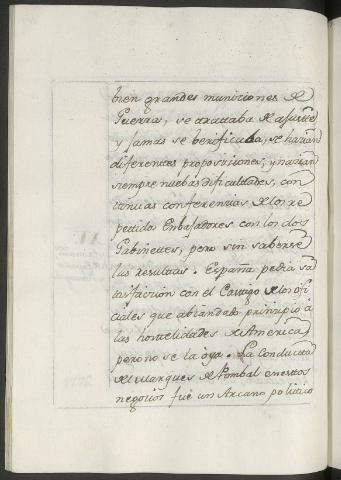 bien grandes municiones de
Guerra, se trattaba de ajuste
y jamas se berificaba, se harian
diferentes proposiciones, y nacian
siempre nuebas dificultades, con
tinuas conferencias de los re
petidos Enbajadores con los dos
Gabinettes, pero sin saberse
las resultas. España pedia sa
tisfaccion con el Castigo de los ofi
ciales que abian dado principio á
las hostilidades de America,
pero no se la oya. La Conducta
del Marques de Pombal en estos
negocios fué un Arcano politico